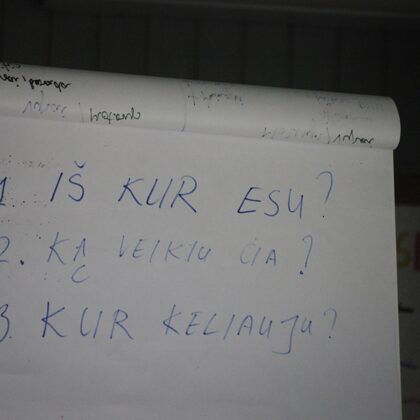 1 IŠ KUR ESU?
2. KĄ VEIKIU ČIA?
3. KUR KELIAUJU?